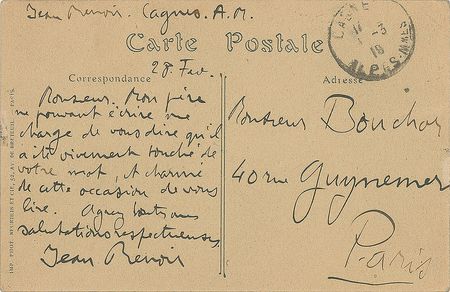 Jean Renoir. Cagnes. A.M.
Carte Postale
28 Fev.
Correspondance
Adresse
Monsieur. Mon père
ne pouvant écrire me
charge de vous dire qu'il
a été vivement touché de
votre mot, et charmé
de cette occasion de vous
lire. Agréez toutes mes
salutations respectueuses
Jean Renoir
Monsieur Bouchor
40 rue Guynemer
Paris
CAGNES
1-3
19
ALPES-MMES
IMP. PHOT. NEURDEIN ET CIE, 52, AV. DE BRETEUIL. PARIS.